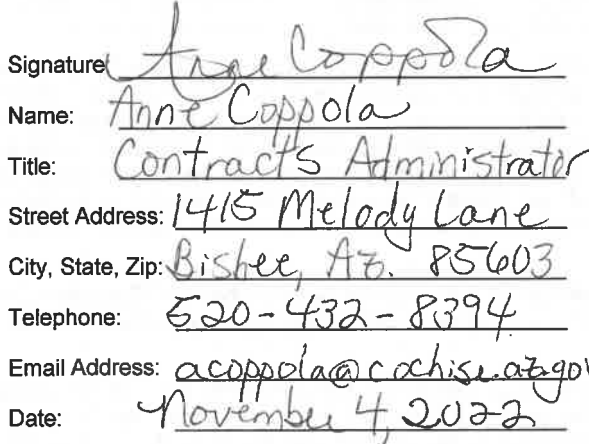 Signature Anne Coppola
Name: Anne Coppola
Title: Contracts Administrator
Street Address: 1415 Melody Lane
City, State, Zip: Bisbee, Az. 85603
Telephone: 520-432-8394
Email Address: acoppola@cochise.az.gov
Date: November 4, 2022